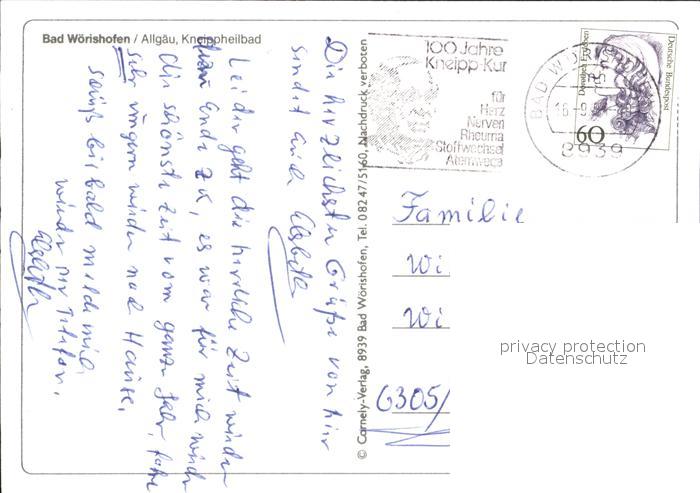 Bad Wörishofen / Allgäu, Kneippheilbad
Die herzlichsten Grüße von hier
sendet Euch
Leider geht die herrliche Zeit wieder
Ende zu, es war für mich wieder
die schönste Zeit vom ganzen Jahr,
sehr ungern wieder nach Hause,
bis bald melde mich
wieder per Telefon.
© Cornely-Verlag, 8939 Bad Wörishofen, Tel. 0 82 47/51 60, Nachdruck verboten
100 Jahre
Kneipp-Kur
für
Herz
Nerven
Rheuma
Stoffwechsel
Atemwege
BAD WÖ
8939
Dorothea Erxleben
Deutsche Bundespost
60
Familie
Wi
Wi
6305/
privacy protection
Datenschutz